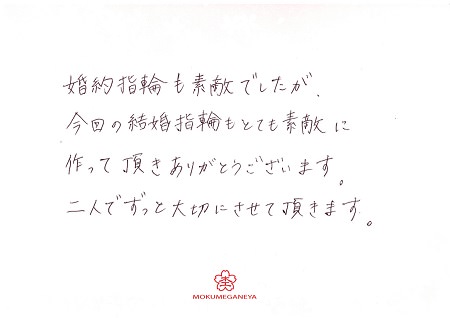 婚約指輪も素敵でしたが、
今回の結婚指輪もとても素敵に
作って頂きありがとうございます。
二人でずっと大切にさせて頂きます。
MOKUMEGANEYA